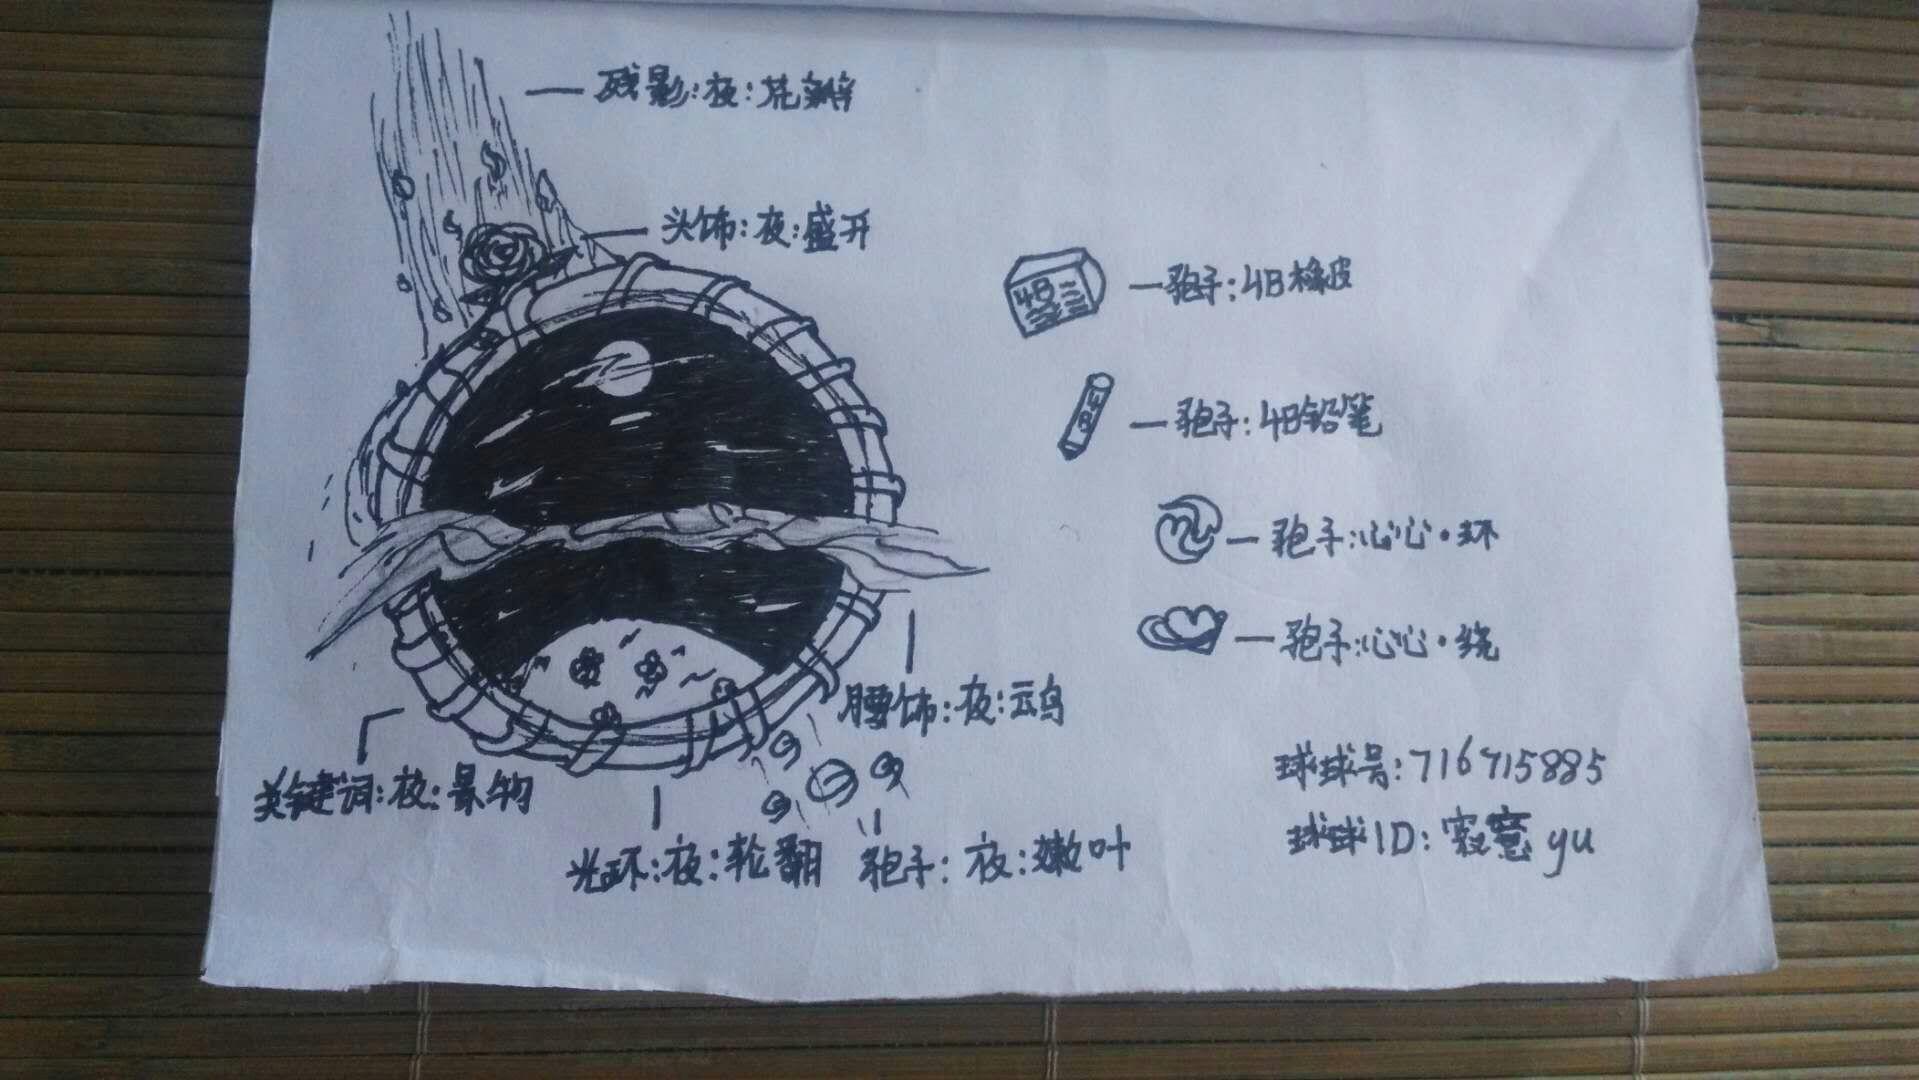 残影:夜:花瓣
头饰:夜:盛开
4B
孢子:4B橡皮
孢子:4B铅笔
孢子:心心·环
孢子:心心·绕
腰饰:夜:云鸟
关键词:夜:景物
光环:夜:轮翻
孢子:夜:嫩叶
球球号:716715885
球球ID:寂意yu